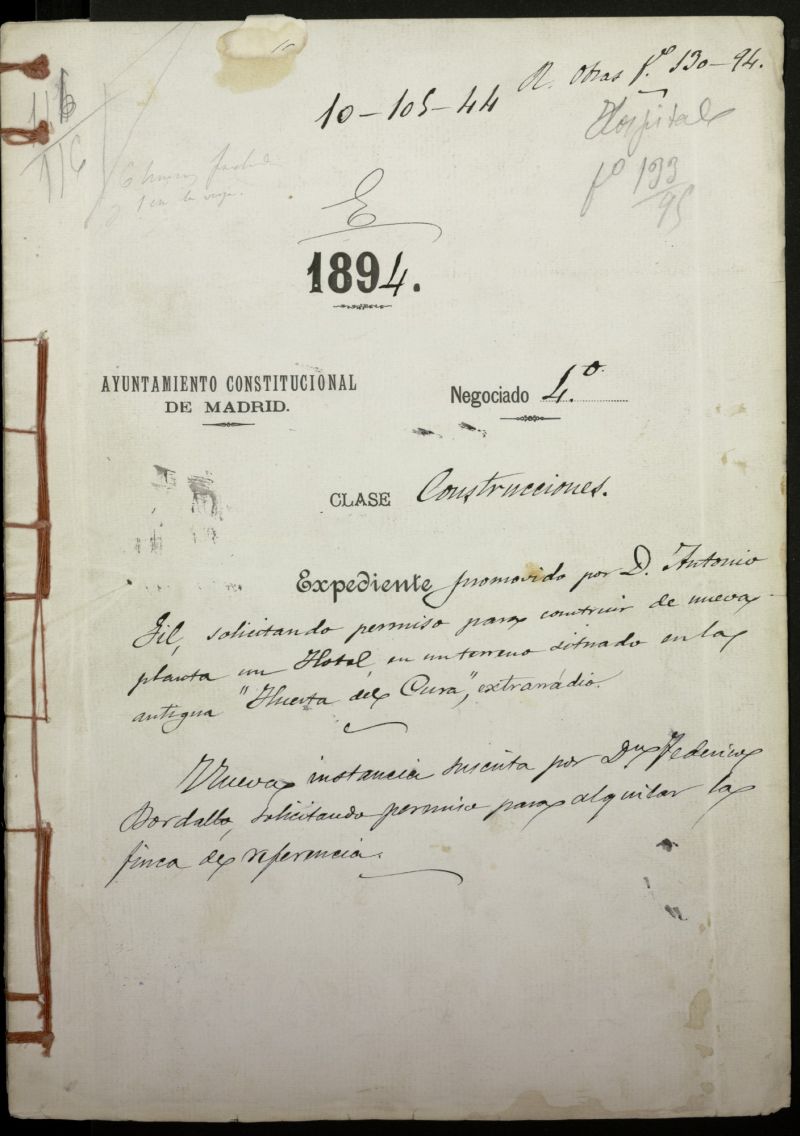 10-105-44 R. Obras fº. 130-94.
Hospital
fº 133
95
116
1 en la
E
1894.
AYUNTAMIENTO CONSTITUCIONAL
DE MADRID.
Negociado 4.º
CLASE Construcciones.
Expediente promovido por D. Antonio
Gil, solicitando permiso para construir de nueva
planta un Hotel, en un terreno situado en la
antigua "Huerta del Cura", extrarradio.
Nueva instancia suscrita por Dn Federico
Bordallo, solicitando permiso para alquilar la
finca de referencia.